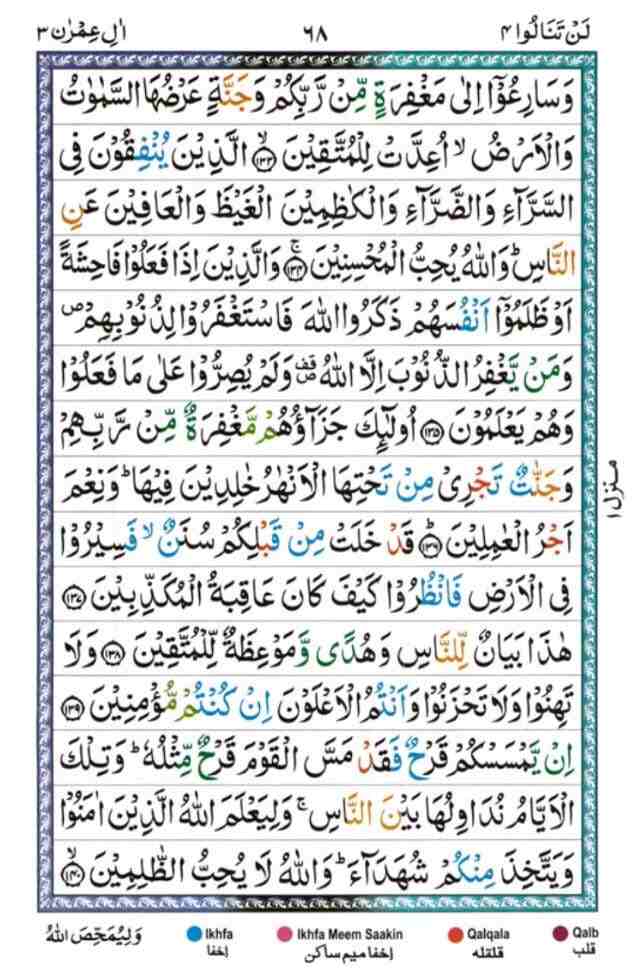 لَنۡ تَنَالُوۡا ۴ ۶۸ اٰلِ عِمۡرٰن ۳
وَسَارِعُوۡۤا اِلٰى مَغۡفِرَةٍ مِّنۡ رَّبِّكُمۡ وَجَنَّةٍ عَرۡضُهَا السَّمٰوٰتُ
وَالۡاَرۡضُۙ اُعِدَّتۡ لِلۡمُتَّقِيۡنَۙ‏ ﴿۱۳۳﴾ الَّذِيۡنَ يُنۡفِقُوۡنَ فِى
السَّرَّآءِ وَالضَّرَّآءِ وَالۡكٰظِمِيۡنَ الۡغَيۡظَ وَالۡعَافِيۡنَ عَنِ
النَّاسِ‌ؕ وَاللّٰهُ يُحِبُّ الۡمُحۡسِنِيۡنَ‌ۚ‏ ﴿۱۳۴﴾ وَالَّذِيۡنَ اِذَا فَعَلُوۡا فَاحِشَةً
اَوۡ ظَلَمُوۡۤا اَنۡفُسَهُمۡ ذَكَرُوا اللّٰهَ فَاسۡتَغۡفَرُوۡا لِذُنُوۡبِهِمۡ ص
وَمَنۡ يَّغۡفِرُ الذُّنُوۡبَ اِلَّا اللّٰهُ قف ص وَلَمۡ يُصِرُّوۡا عَلٰى مَا فَعَلُوۡا
وَهُمۡ يَعۡلَمُوۡنَ‏ ﴿۱۳۵﴾ اُولٰٓـئِكَ جَزَآؤُهُمۡ مَّغۡفِرَةٌ مِّنۡ رَّبِّهِمۡ
وَجَنّٰتٌ تَجۡرِىۡ مِنۡ تَحۡتِهَا الۡاَنۡهٰرُ خٰلِدِيۡنَ فِيۡهَا‌ؕ وَنِعۡمَ
اَجۡرُ الۡعٰمِلِيۡنَؕ‏ ﴿۱۳۶﴾ قَدۡ خَلَتۡ مِنۡ قَبۡلِكُمۡ سُنَنٌ ۙ فَسِيۡرُوۡا
فِى الۡاَرۡضِ فَانۡظُرُوۡا كَيۡفَ كَانَ عَاقِبَةُ الۡمُكَذِّبِيۡنَ‏ ﴿۱۳۷﴾
هٰذَا بَيَانٌ لِّلنَّاسِ وَهُدًى وَّمَوۡعِظَةٌ لِّلۡمُتَّقِيۡنَ‏ ﴿۱۳۸﴾ وَلَا
تَهِنُوۡا وَلَا تَحۡزَنُوۡا وَاَنۡتُمُ الۡاَعۡلَوۡنَ اِنۡ كُنۡتُمۡ مُّؤۡمِنِيۡنَ‏ ﴿۱۳۹﴾
اِنۡ يَّمۡسَسۡكُمۡ قَرۡحٌ فَقَدۡ مَسَّ الۡقَوۡمَ قَرۡحٌ مِّثۡلُهٗ ‌ؕ وَتِلۡكَ
الۡاَيَّامُ نُدَاوِلُهَا بَيۡنَ النَّاسِۚ وَلِيَعۡلَمَ اللّٰهُ الَّذِيۡنَ اٰمَنُوۡا
وَيَتَّخِذَ مِنۡكُمۡ شُهَدَآءَ‌ؕ وَاللّٰهُ لَا يُحِبُّ الظّٰلِمِيۡنَۙ‏ ﴿۱۴۰﴾
منزل ۱
وَلِيُمَحِّصَ اللّٰهُ
Ikhfa Ikhfa Meem Saakin Qalqala Qalb
إخفا إخفا ميم ساكن قلقله قلب